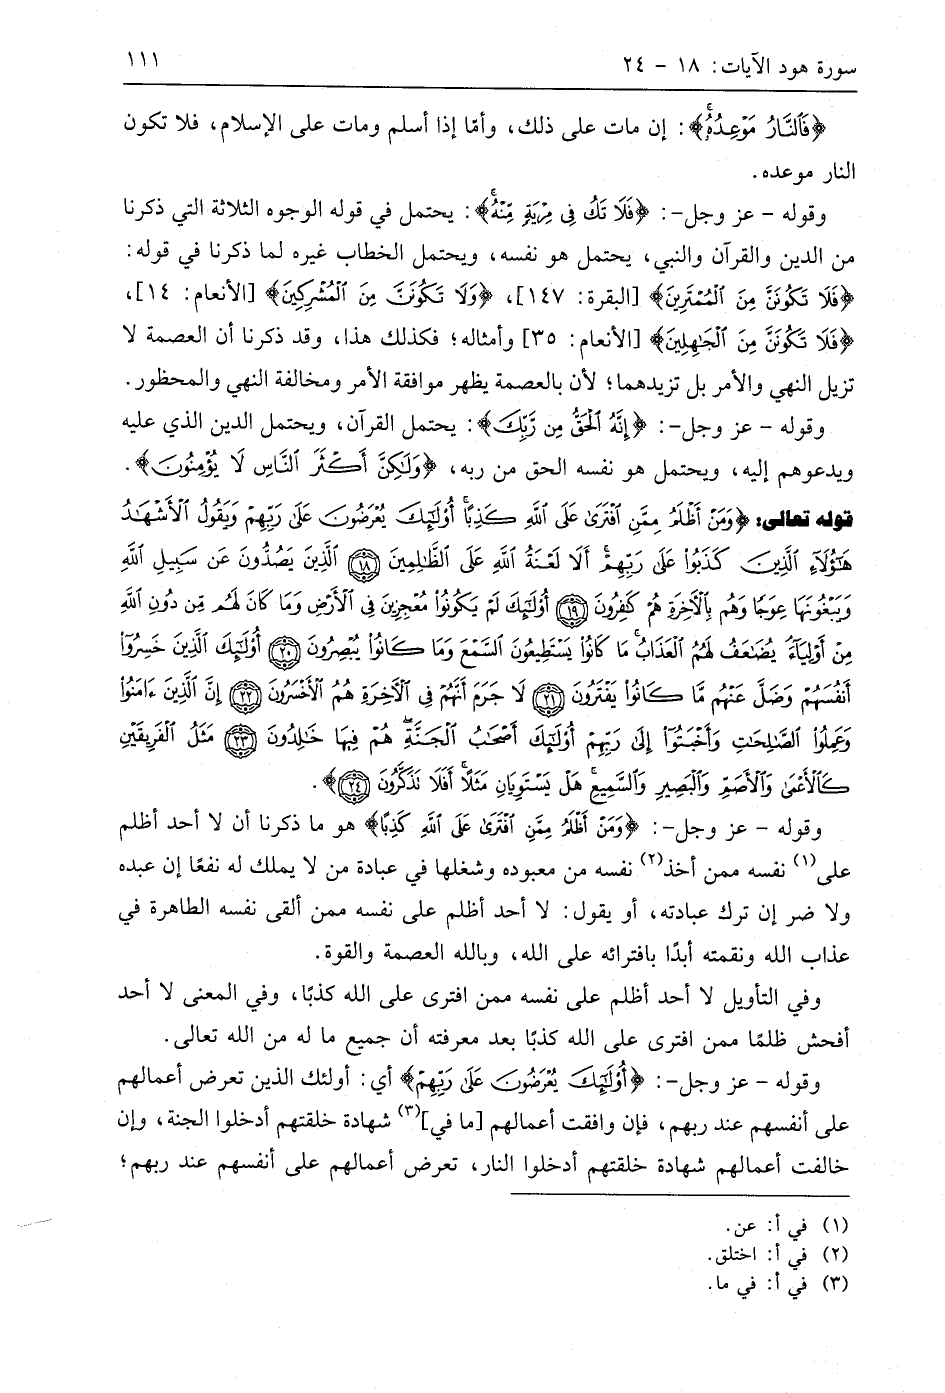 سورة هود الآيات: ١٨ - ٢٤
١١١
﴿فَٱلنَّارُ مَوْعِدُهُۥۚ﴾: إن مات على ذلك، وأمّا إذا أسلم ومات على الإسلام، فلا تكون
النار موعده.
وقوله - عز وجل-: ﴿فَلَا تَكُ فِى مِرْيَةٍ مِّنْهُۚ﴾: يحتمل في قوله الوجوه الثلاثة التي ذكرنا
من الدين والقرآن والنبي، يحتمل هو نفسه، ويحتمل الخطاب غيره لما ذكرنا في قوله:
﴿فَلَا تَكُونَنَّ مِنَ ٱلْمُمْتَرِينَ﴾ [البقرة: ١٤٧]، ﴿وَلَا تَكُونَنَّ مِنَ ٱلْمُشْرِكِينَ﴾ [الأنعام: ١٤]،
﴿فَلَا تَكُونَنَّ مِنَ ٱلْجَٰهِلِينَ﴾ [الأنعام: ٣٥] وأمثاله؛ فكذلك هذا، وقد ذكرنا أن العصمة لا
تزيل النهي والأمر بل تزيدهما؛ لأن بالعصمة يظهر موافقة الأمر ومخالفة النهي والمحظور.
وقوله - عز وجل-: ﴿إِنَّهُ ٱلْحَقُّ مِن رَّبِّكَ﴾: يحتمل القرآن، ويحتمل الدين الذي عليه
ويدعوهم إليه، ويحتمل هو نفسه الحق من ربه، ﴿وَلَٰكِنَّ أَكْثَرَ ٱلنَّاسِ لَا يُؤْمِنُونَ﴾.
قوله تعالى: ﴿وَمَنْ أَظْلَمُ مِمَّنِ ٱفْتَرَىٰ عَلَى ٱللَّهِ كَذِبًاۚ أُو۟لَٰٓئِكَ يُعْرَضُونَ عَلَىٰ رَبِّهِمْ وَيَقُولُ ٱلْأَشْهَٰدُ
هَٰٓؤُلَآءِ ٱلَّذِينَ كَذَبُوا۟ عَلَىٰ رَبِّهِمْۚ أَلَا لَعْنَةُ ٱللَّهِ عَلَى ٱلظَّٰلِمِينَ ﴿١٨﴾ ٱلَّذِينَ يَصُدُّونَ عَن سَبِيلِ ٱللَّهِ
وَيَبْغُونَهَا عِوَجًا وَهُم بِٱلْآخِرَةِ هُمْ كَٰفِرُونَ ﴿١٩﴾ أُو۟لَٰٓئِكَ لَمْ يَكُونُوا۟ مُعْجِزِينَ فِى ٱلْأَرْضِ وَمَا كَانَ لَهُم مِّن دُونِ ٱللَّهِ
مِنْ أَوْلِيَآءَۘ يُضَٰعَفُ لَهُمُ ٱلْعَذَابُۚ مَا كَانُوا۟ يَسْتَطِيعُونَ ٱلسَّمْعَ وَمَا كَانُوا۟ يُبْصِرُونَ ﴿٢٠﴾ أُو۟لَٰٓئِكَ ٱلَّذِينَ خَسِرُوٓا۟
أَنفُسَهُمْ وَضَلَّ عَنْهُم مَّا كَانُوا۟ يَفْتَرُونَ ﴿٢١﴾ لَا جَرَمَ أَنَّهُمْ فِى ٱلْآخِرَةِ هُمُ ٱلْأَخْسَرُونَ ﴿٢٢﴾ إِنَّ ٱلَّذِينَ ءَامَنُوا۟
وَعَمِلُوا۟ ٱلصَّٰلِحَٰتِ وَأَخْبَتُوٓا۟ إِلَىٰ رَبِّهِمْ أُو۟لَٰٓئِكَ أَصْحَٰبُ ٱلْجَنَّةِۖ هُمْ فِيهَا خَٰلِدُونَ ﴿٢٣﴾ مَثَلُ ٱلْفَرِيقَيْنِ
كَٱلْأَعْمَىٰ وَٱلْأَصَمِّ وَٱلْبَصِيرِ وَٱلسَّمِيعِۚ هَلْ يَسْتَوِيَانِ مَثَلًاۚ أَفَلَا نَذَكَّرُونَ ﴿٢٤﴾﴾.
وقوله - عز وجل-: ﴿وَمَنْ أَظْلَمُ مِمَّنِ ٱفْتَرَىٰ عَلَى ٱللَّهِ كَذِبًا﴾ هو ما ذكرنا أن لا أحد أظلم
على(١) نفسه ممن أخذ(٢) نفسه من معبوده وشغلها في عبادة من لا يملك له نفعًا إن عبده
ولا ضر إن ترك عبادته، أو يقول: لا أحد أظلم على نفسه ممن ألقى نفسه الطاهرة في
عذاب الله ونقمته أبدًا بافترائه على الله، وبالله العصمة والقوة.
وفي التأويل لا أحد أظلم على نفسه ممن افترى على الله كذبًا، وفي المعنى لا أحد
أفحش ظلمًا ممن افترى على الله كذبًا بعد معرفته أن جميع ما له من الله تعالى.
وقوله - عز وجل-: ﴿أُو۟لَٰٓئِكَ يُعْرَضُونَ عَلَىٰ رَبِّهِمْ﴾ أي: أولئك الذين تعرض أعمالهم
على أنفسهم عند ربهم، فإن وافقت أعمالهم [ما في](٣) شهادة خلقتهم أدخلوا الجنة، وإن
خالفت أعمالهم شهادة خلقتهم أدخلوا النار، تعرض أعمالهم على أنفسهم عند ربهم؛
(١) في أ: عن.
(٢) في أ: اختلق.
(٣) في أ: في ما.